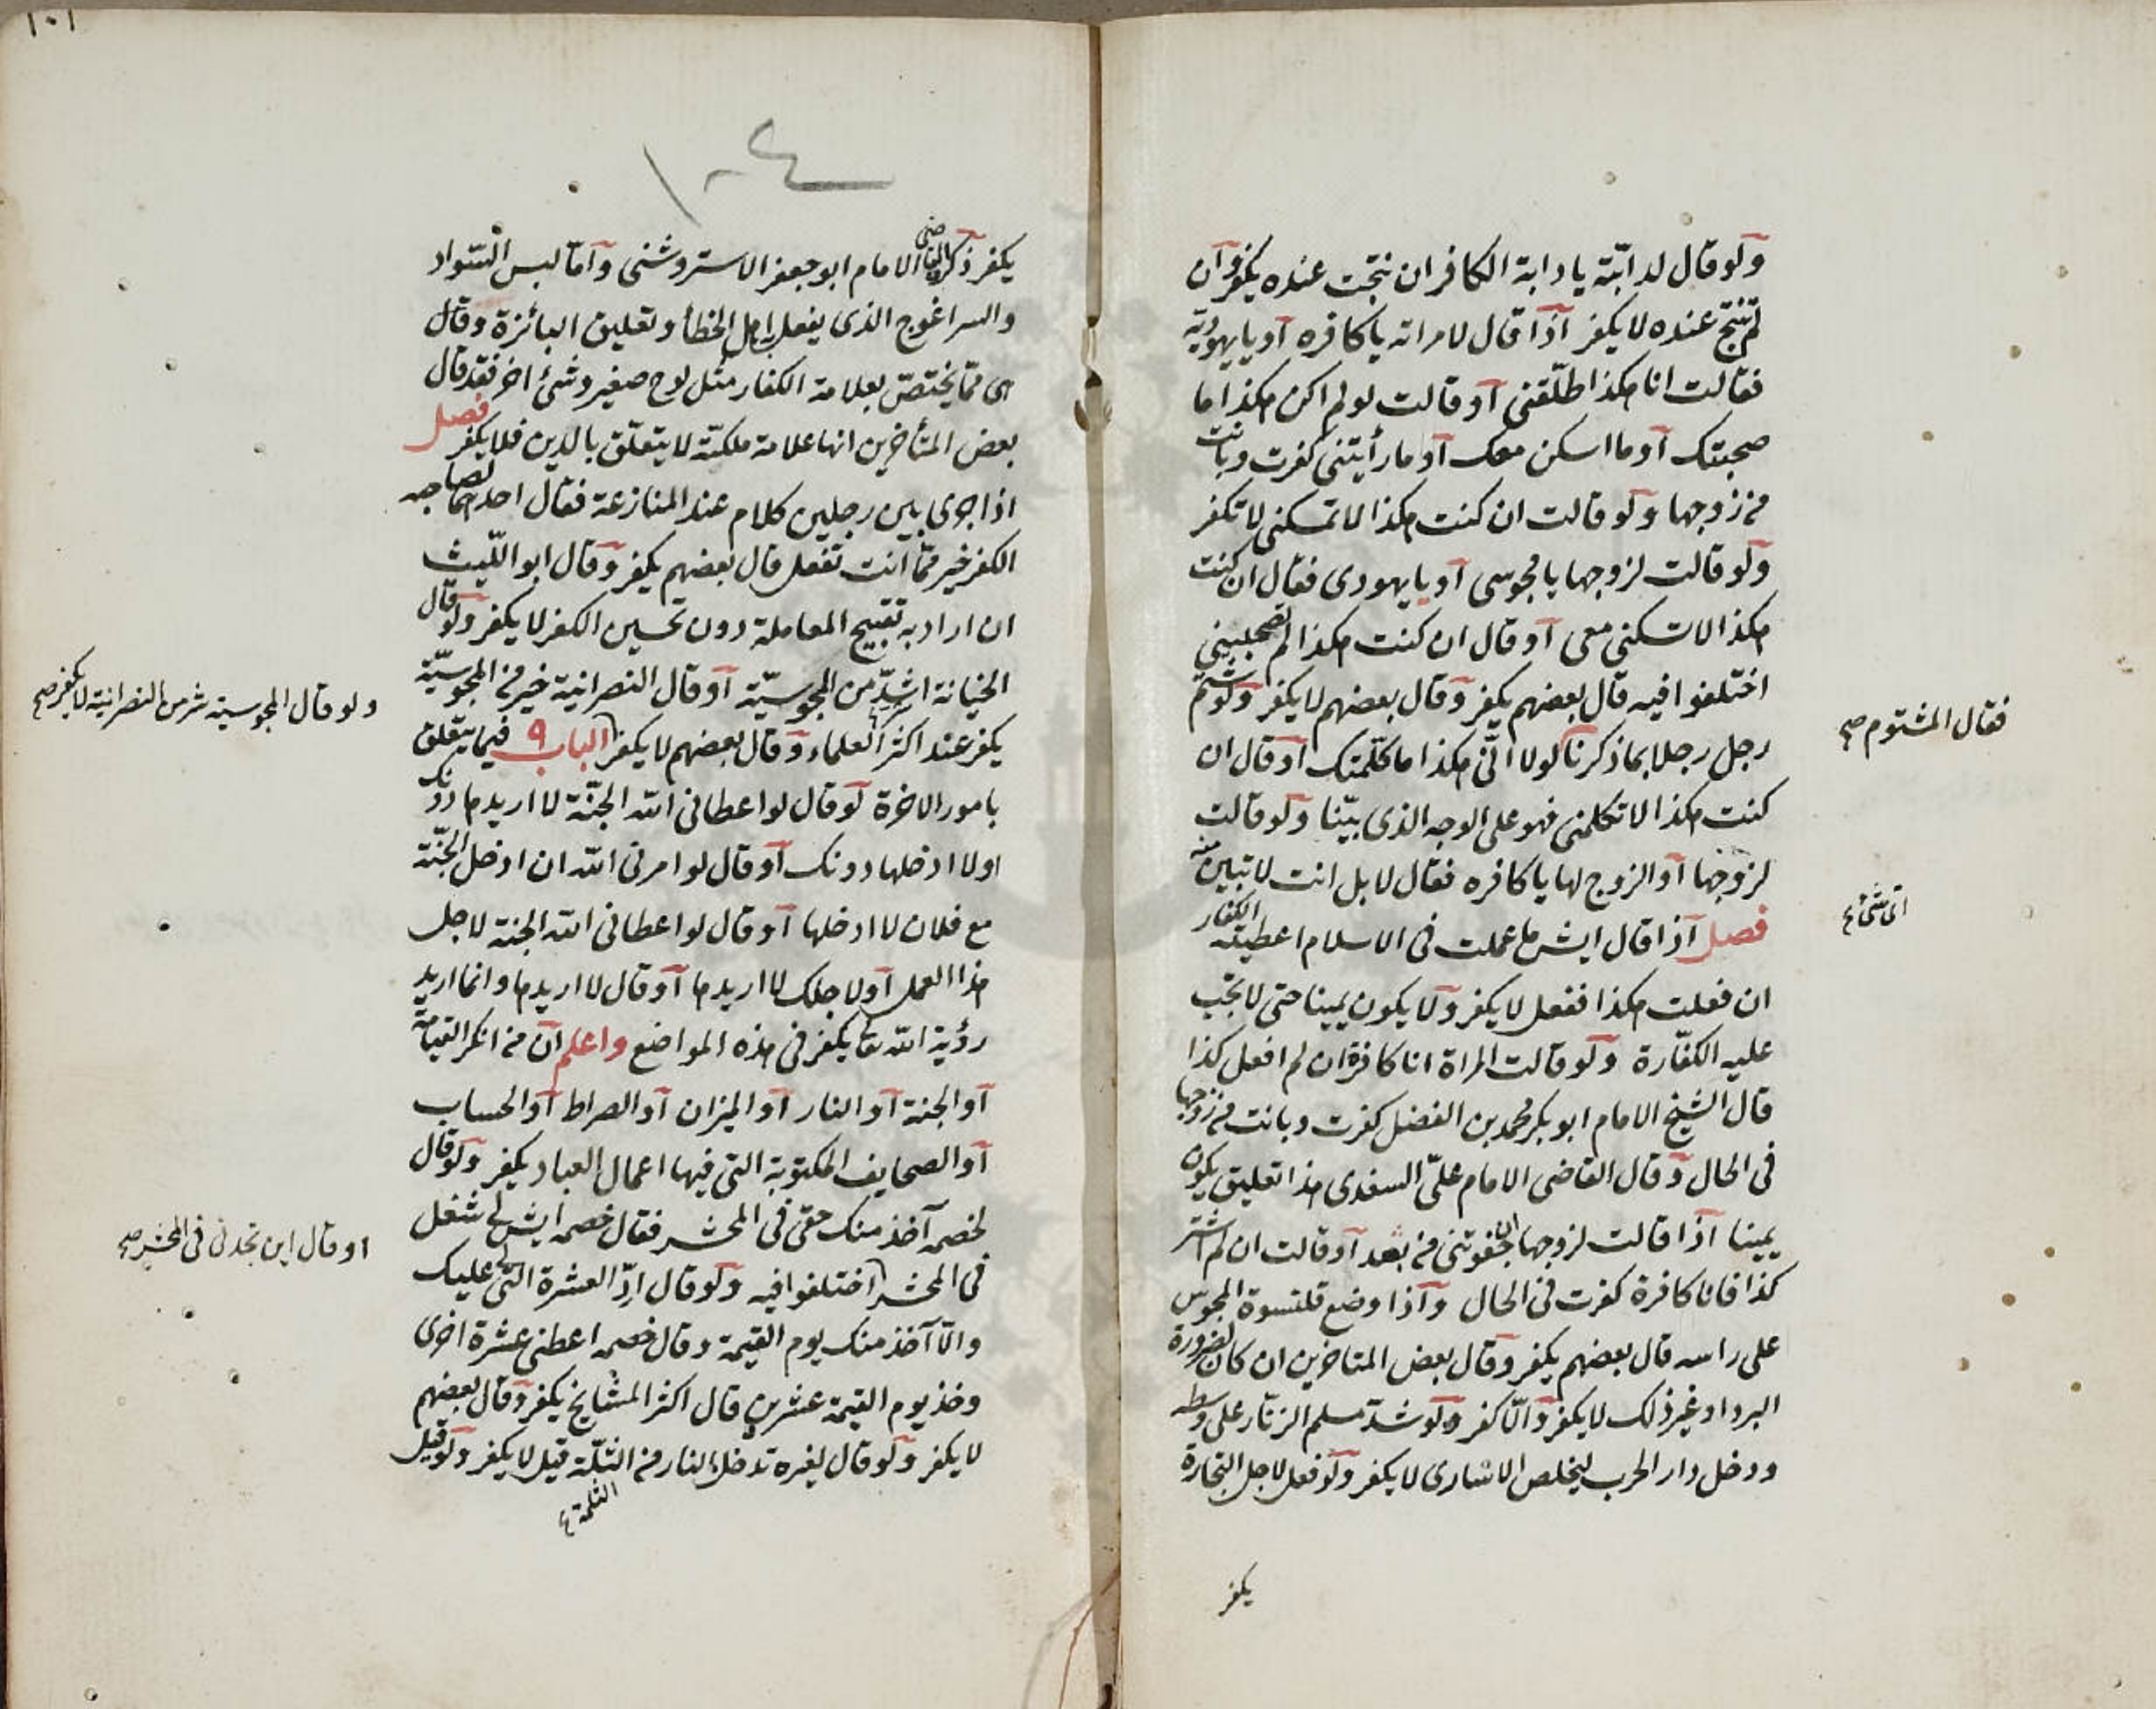 ولو قال لدابته يا دابة الكافر ان نتجت عنده يكفر وان
لم تنتج عنده لا يكفر اذا قال لامراته يا كافره او يا يهوديه
فقالت انا هكذا طلقنى او قالت لو لم اكن هكذا ما
صحبتك او ما اسكن معك او ما رأيتنى كفرت وبانت
من زوجها ولو قالت ان كنت هكذا لا تمسكنى لا تكفر
ولو قالت لزوجها يا مجوسى او يا يهودى فقال ان كنت
هكذا لا تسكنى معى او قال ان كنت هكذا لم تصحبينى
اختلفوا فيه قال بعضهم يكفر وقال بعضهم لا يكفر ولو شتم
رجل رجلا بما ذكرنا لولا انى هكذا ما كلمتك او قال ان
فقال المشتوم صح
كنت هكذا لا تكلمنى فهو على الوجه الذى بينا ولو قالت
لزوجها او الزوج لها يا كافره فقال لا بل انت لا تبين منه
فصل اذا قال ايش ما عملت فى الاسلام اعطيته الكفار
ان فعلت هكذا ففعل لا يكفر ولا يكون يمينا حتى لا تجب
عليه الكفارة ولو قالت المراة انا كافرة ان لم افعل كذا
قال الشيخ الامام ابو بكر محمد بن الفضل كفرت وبانت من زوجها
فى الحال وقال القاضى الامام على السغدى هذا تعليق يكون
يمينا اذا قالت لزوجها ان جفوتنى من بعد او قالت ان لم تشتر
كذا فانا كافرة كفرت فى الحال واذا وضع قلنسوة المجوس
على راسه قال بعضهم يكفر وقال بعض المتاخرين ان كان لضرورة
البرد او غير ذلك لا يكفر والا كفر ولو شد مسلم الزنار على وسطه
ودخل دار الحرب ليخلص الاسارى لا يكفر ولو فعل لاجل التجارة
يكفر
١٠١
١٠٤
يكفر ذكره القاضى الامام ابو جعفر الاستروشنى واما لبس السواد
والسراغوج الذى يفعله اهل الخطأ وتعليق البائزة وقال
هى مما يختص بعلامة الكفار مثل لوح صغير وشئ اخر فقد قال
بعض المتأخرين انها علامة ملكية لا يتعلق بالدين فلا يكفر فصل
اذا جرى بين رجلين كلام عند المنازعة فقال احدهما لصاحبه
الكفر خير مما انت تفعل قال بعضهم يكفر وقال ابو الليث
ان اراد به تقبيح المعاملة دون تحسين الكفر لا يكفر ولو قال
الخيانة اشد من المجوسية او قال النصرانية خير من المجوسية
ولو قال المجوسية شر من النصرانية لا يكفر صح
يكفر عند اكثر العلماء وقال بعضهم لا يكفر الباب ٩ فيما يتعلق
بامور الاخرة لو قال لو اعطانى الله الجنة لا اريدها دونك
او لا ادخلها دونك او قال لو امرنى الله ان ادخل الجنة
مع فلان لا ادخلها او قال لو اعطانى الله الجنة لاجل
هذا العمل او لاجلك لا اريدها او قال لا اريدها وانما اريد
رؤية الله تعا يكفر فى هذه المواضع واعلم ان من انكر القيامة
او الجنة او النار او الميزان او الصراط او الحساب
او الصحايف المكتوبة التى فيها اعمال العباد يكفر ولو قال
لخصمه آخذ منك حقى فى المحشر فقال خصمه ايش لى شغل
او قال اين تجدنى فى المحشر صح
فى المحشر اختلفوا فيه ولو قال ارد العشرة التى لى عليك
والا آخذ منك يوم القيمة وقال خصمه اعطنى عشرة اخرى
وخذ يوم القيمة عشرين قال اكثر المشايخ يكفر وقال بعضهم
لا يكفر ولو قال لغيره تدخل النار من الثلة قيل لا يكفر ولو قيل
الثلمة